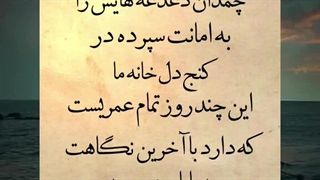 چمدان دغدغه هایش را
به امانت سپرده در
کنج دل خانه ما
این چند روز تمام عمریست
که دارد با آخرین نگاهت